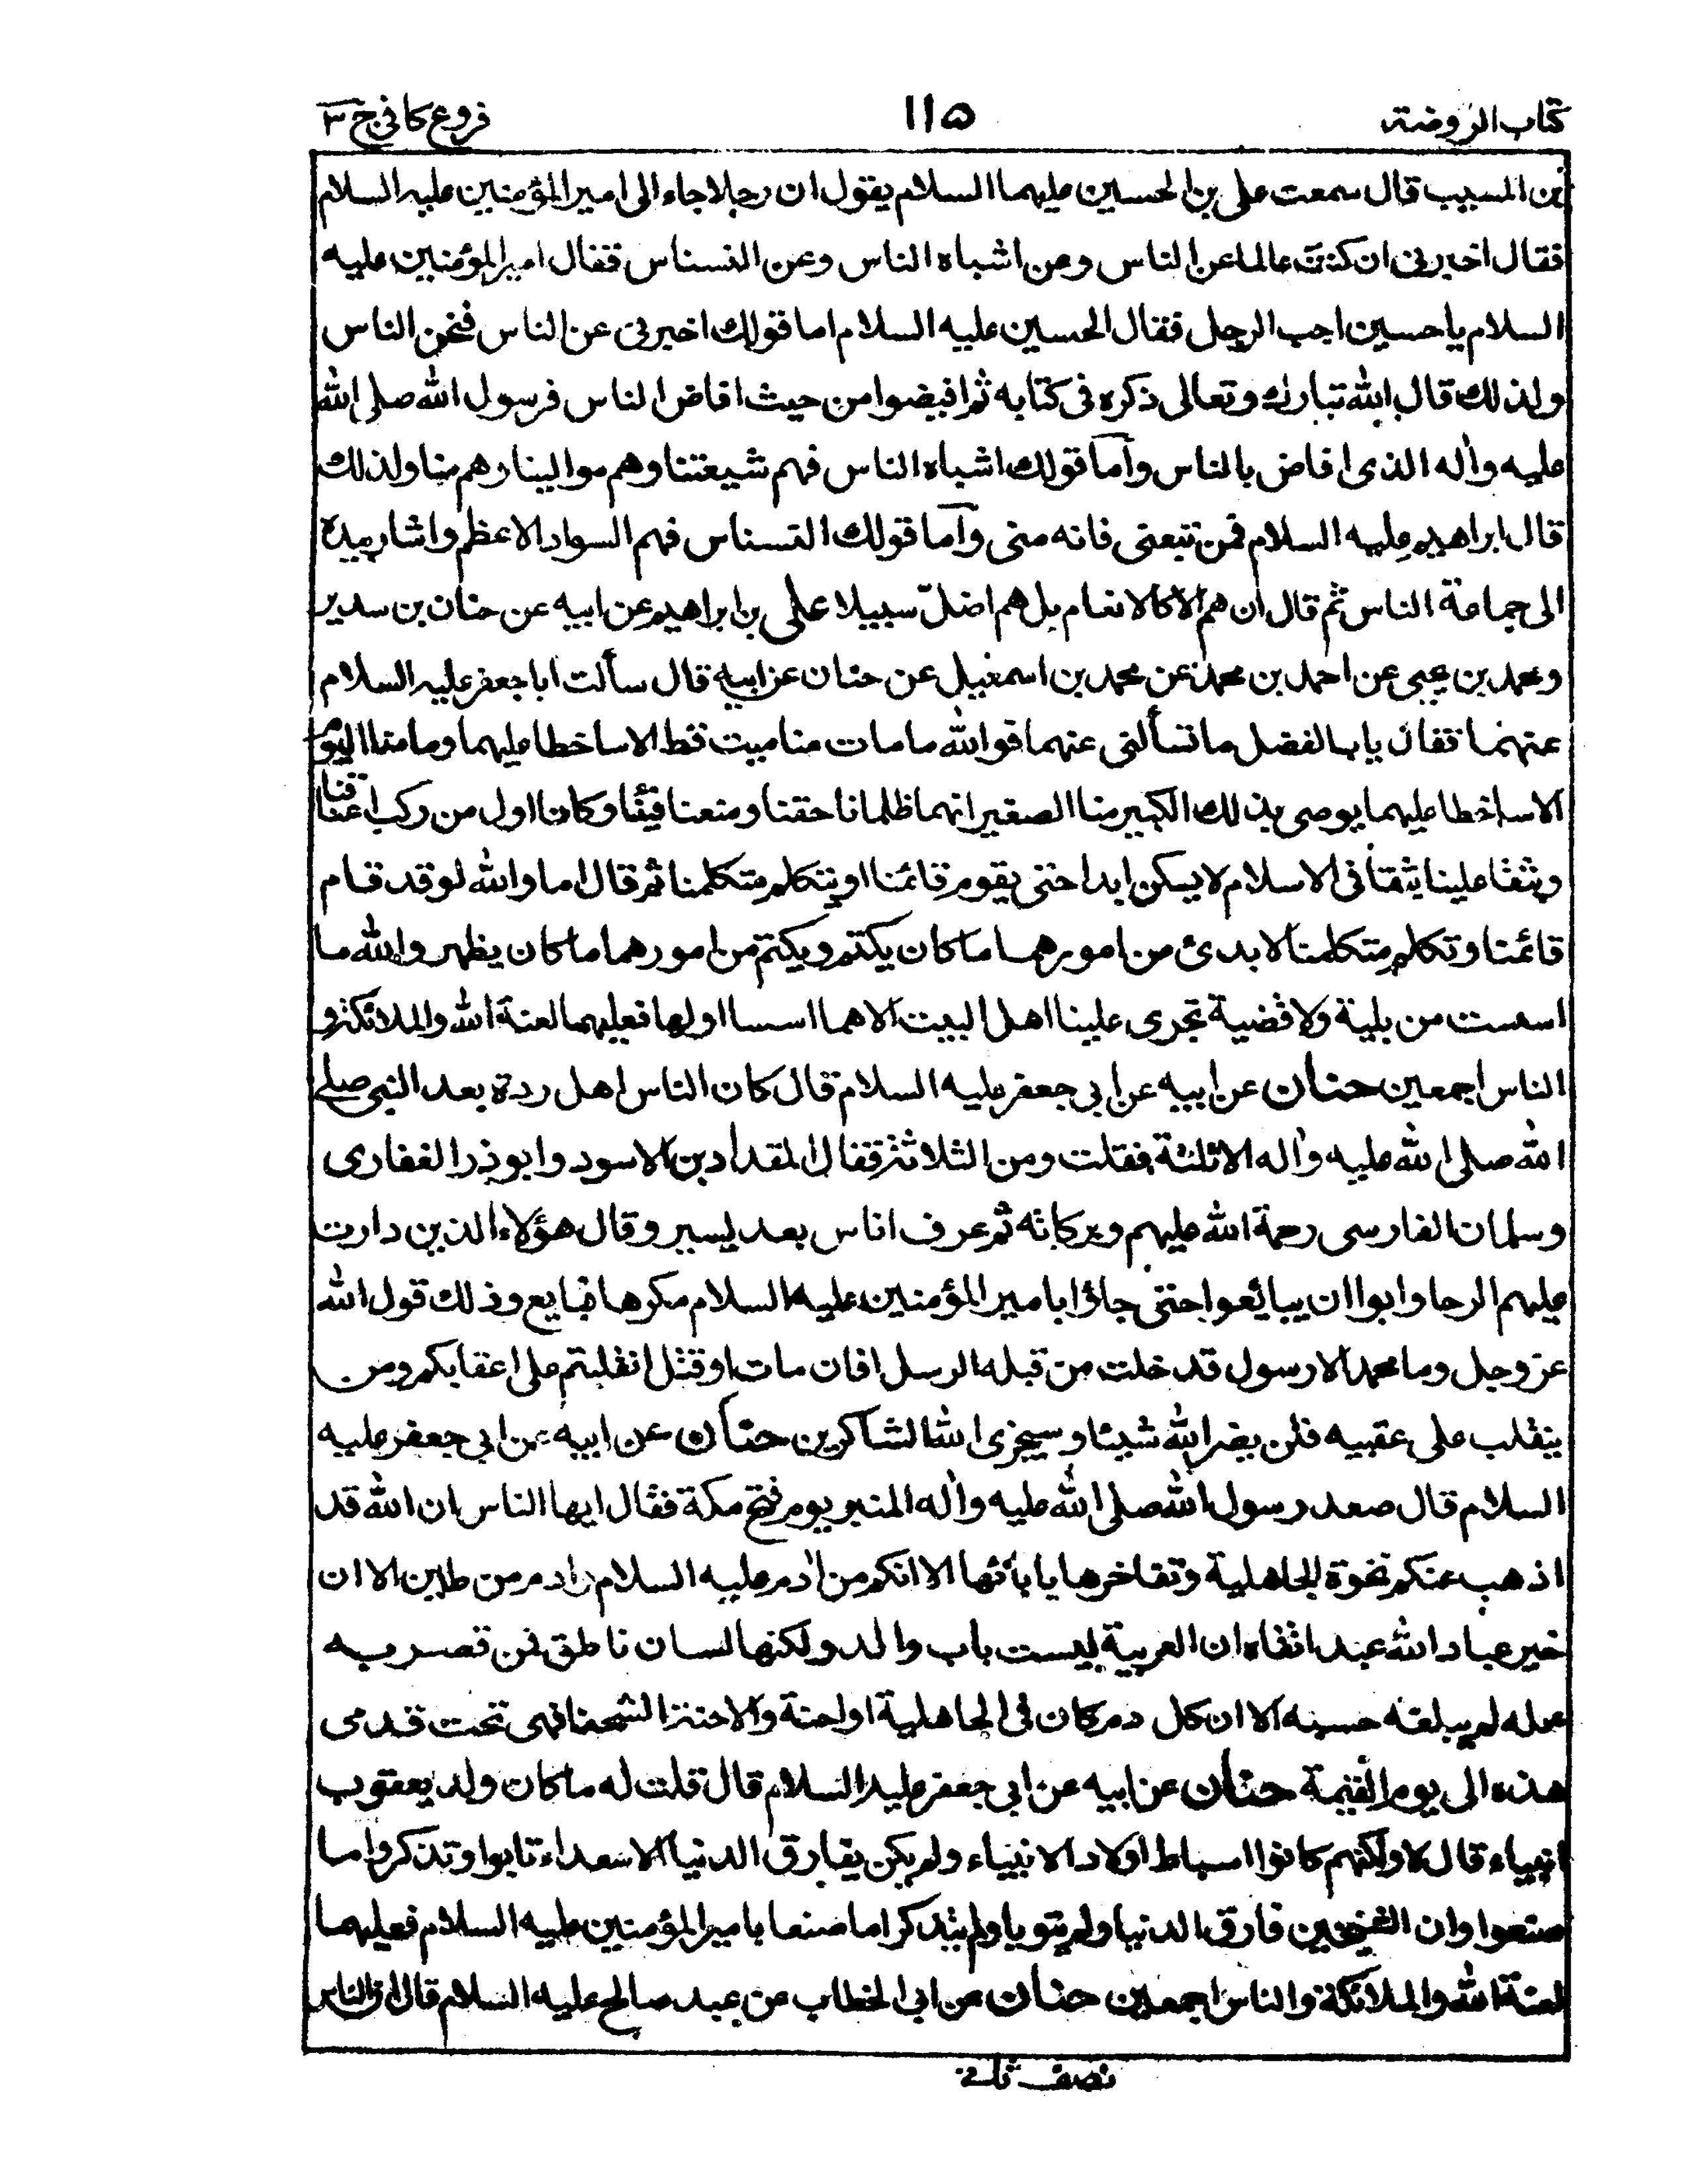 كتاب الروضة ١١٥ فروع كافى ج ٣
بن المسيب قال سمعت على بن الحسين عليهما السلام يقول ان رجلا جاء الى امير المؤمنين عليه السلام
فقال اخبرنى ان كنت عالما عن الناس وعن اشباه الناس وعن النسناس فقال امير المؤمنين عليه
السلام يا حسين اجب الرجل فقال الحسين عليه السلام اما قولك اخبرنى عن الناس فنحن الناس
ولذلك قال الله تبارك وتعالى ذكره فى كتابه ثم افيضوا من حيث افاض الناس فرسول الله صلى الله
عليه واله الذى افاض بالناس وأما قولك اشباه الناس فهم شيعتنا وهم موالينا وهم منا ولذلك
قال ابراهيم عليه السلام فمن تبعنى فانه منى وأما قولك النسناس فهم السواد الاعظم واشار بيده
الى جماعة الناس ثم قال ان هم الا كالانعام بل هم اضل سبيلا على بن ابراهيم عن ابيه عن حنان بن سدير
ومحمد بن يحيى عن احمد بن محمد عن محمد بن اسمعيل عن حنان عن ابيه قال سألت ابا جعفر عليه السلام
عنهما فقال يابا الفضل ما تسألنى عنهما فوالله ما مات منا ميت قط الا ساخطا عليهما وما منا اليوم
الا ساخطا عليهما يوصى بذلك الكبير منا الصغير انهما ظلمانا حقنا ومنعنا فيئنا وكانا اول من ركب اعناقنا
وبثقا علينا بثقا فى الاسلام لا يسكن ابدا حتى يقوم قائمنا او يتكلم متكلمنا ثم قال اما والله لو قد قام
قائمنا وتكلم متكلمنا لابدئ من امورهما ما كان يكتم ويكتم من امورهما ما كان يظهر والله ما
اسست من بلية ولا قضية تجرى علينا اهل البيت الا هما اسسا اولها فعليهما لعنة الله والملائكة و
الناس اجمعين حنان عن ابيه عن ابى جعفر عليه السلام قال كان الناس اهل ردة بعد النبى صلى
الله صلى الله عليه واله الا ثلثة فقلت ومن الثلاثة فقال المقداد بن الاسود وابوذر الغفارى
وسلمان الفارسى رحمة الله عليهم وبركاته ثم عرف اناس بعد يسير وقال هؤلاء الذين دارت
عليهم الرحا وابوا ان يبايعوا حتى جاؤا بامير المؤمنين عليه السلام مكرها فبايع وذلك قول الله
عز وجل وما محمد الا رسول قد خلت من قبله الرسل افان مات او قتل انقلبتم على اعقابكم ومن
ينقلب على عقبيه فلن يضر الله شيئا وسيجزى الله الشاكرين حنان عن ابيه عن ابى جعفر عليه
السلام قال صعد رسول الله صلى الله عليه واله المنبر يوم فتح مكة فقال ايها الناس ان الله قد
اذهب عنكم نخوة الجاهلية وتفاخرها بابائها الا انكم من ادم عليه السلام وادم من طين الا ان
خير عباد الله عبد اتقاه ان العربية ليست باب والد ولكنها لسان ناطق فمن قصر به
عمله لم يبلغه حسبه الا ان كل دم كان فى الجاهلية او احنة والاحنة الشحنا فهى تحت قدمى
هذه الى يوم القيمة حنان عن ابيه عن ابى جعفر عليه السلام قال قلت له ما كان ولد يعقوب
انبياء قال لا ولكنهم كانوا اسباط اولاد الانبياء ولم يكن يفارق الدنيا الا سعداء تابوا وتذكروا ما
صنعوا وان الشيخين فارقا الدنيا ولم يتوبا ولم يتذكرا ما صنعا بامير المؤمنين عليه السلام فعليهما
لعنة الله والملائكة والناس اجمعين حنان عن ابى الخطاب عن عبد صالح عليه السلام قال ان الناس
نصف ثانى